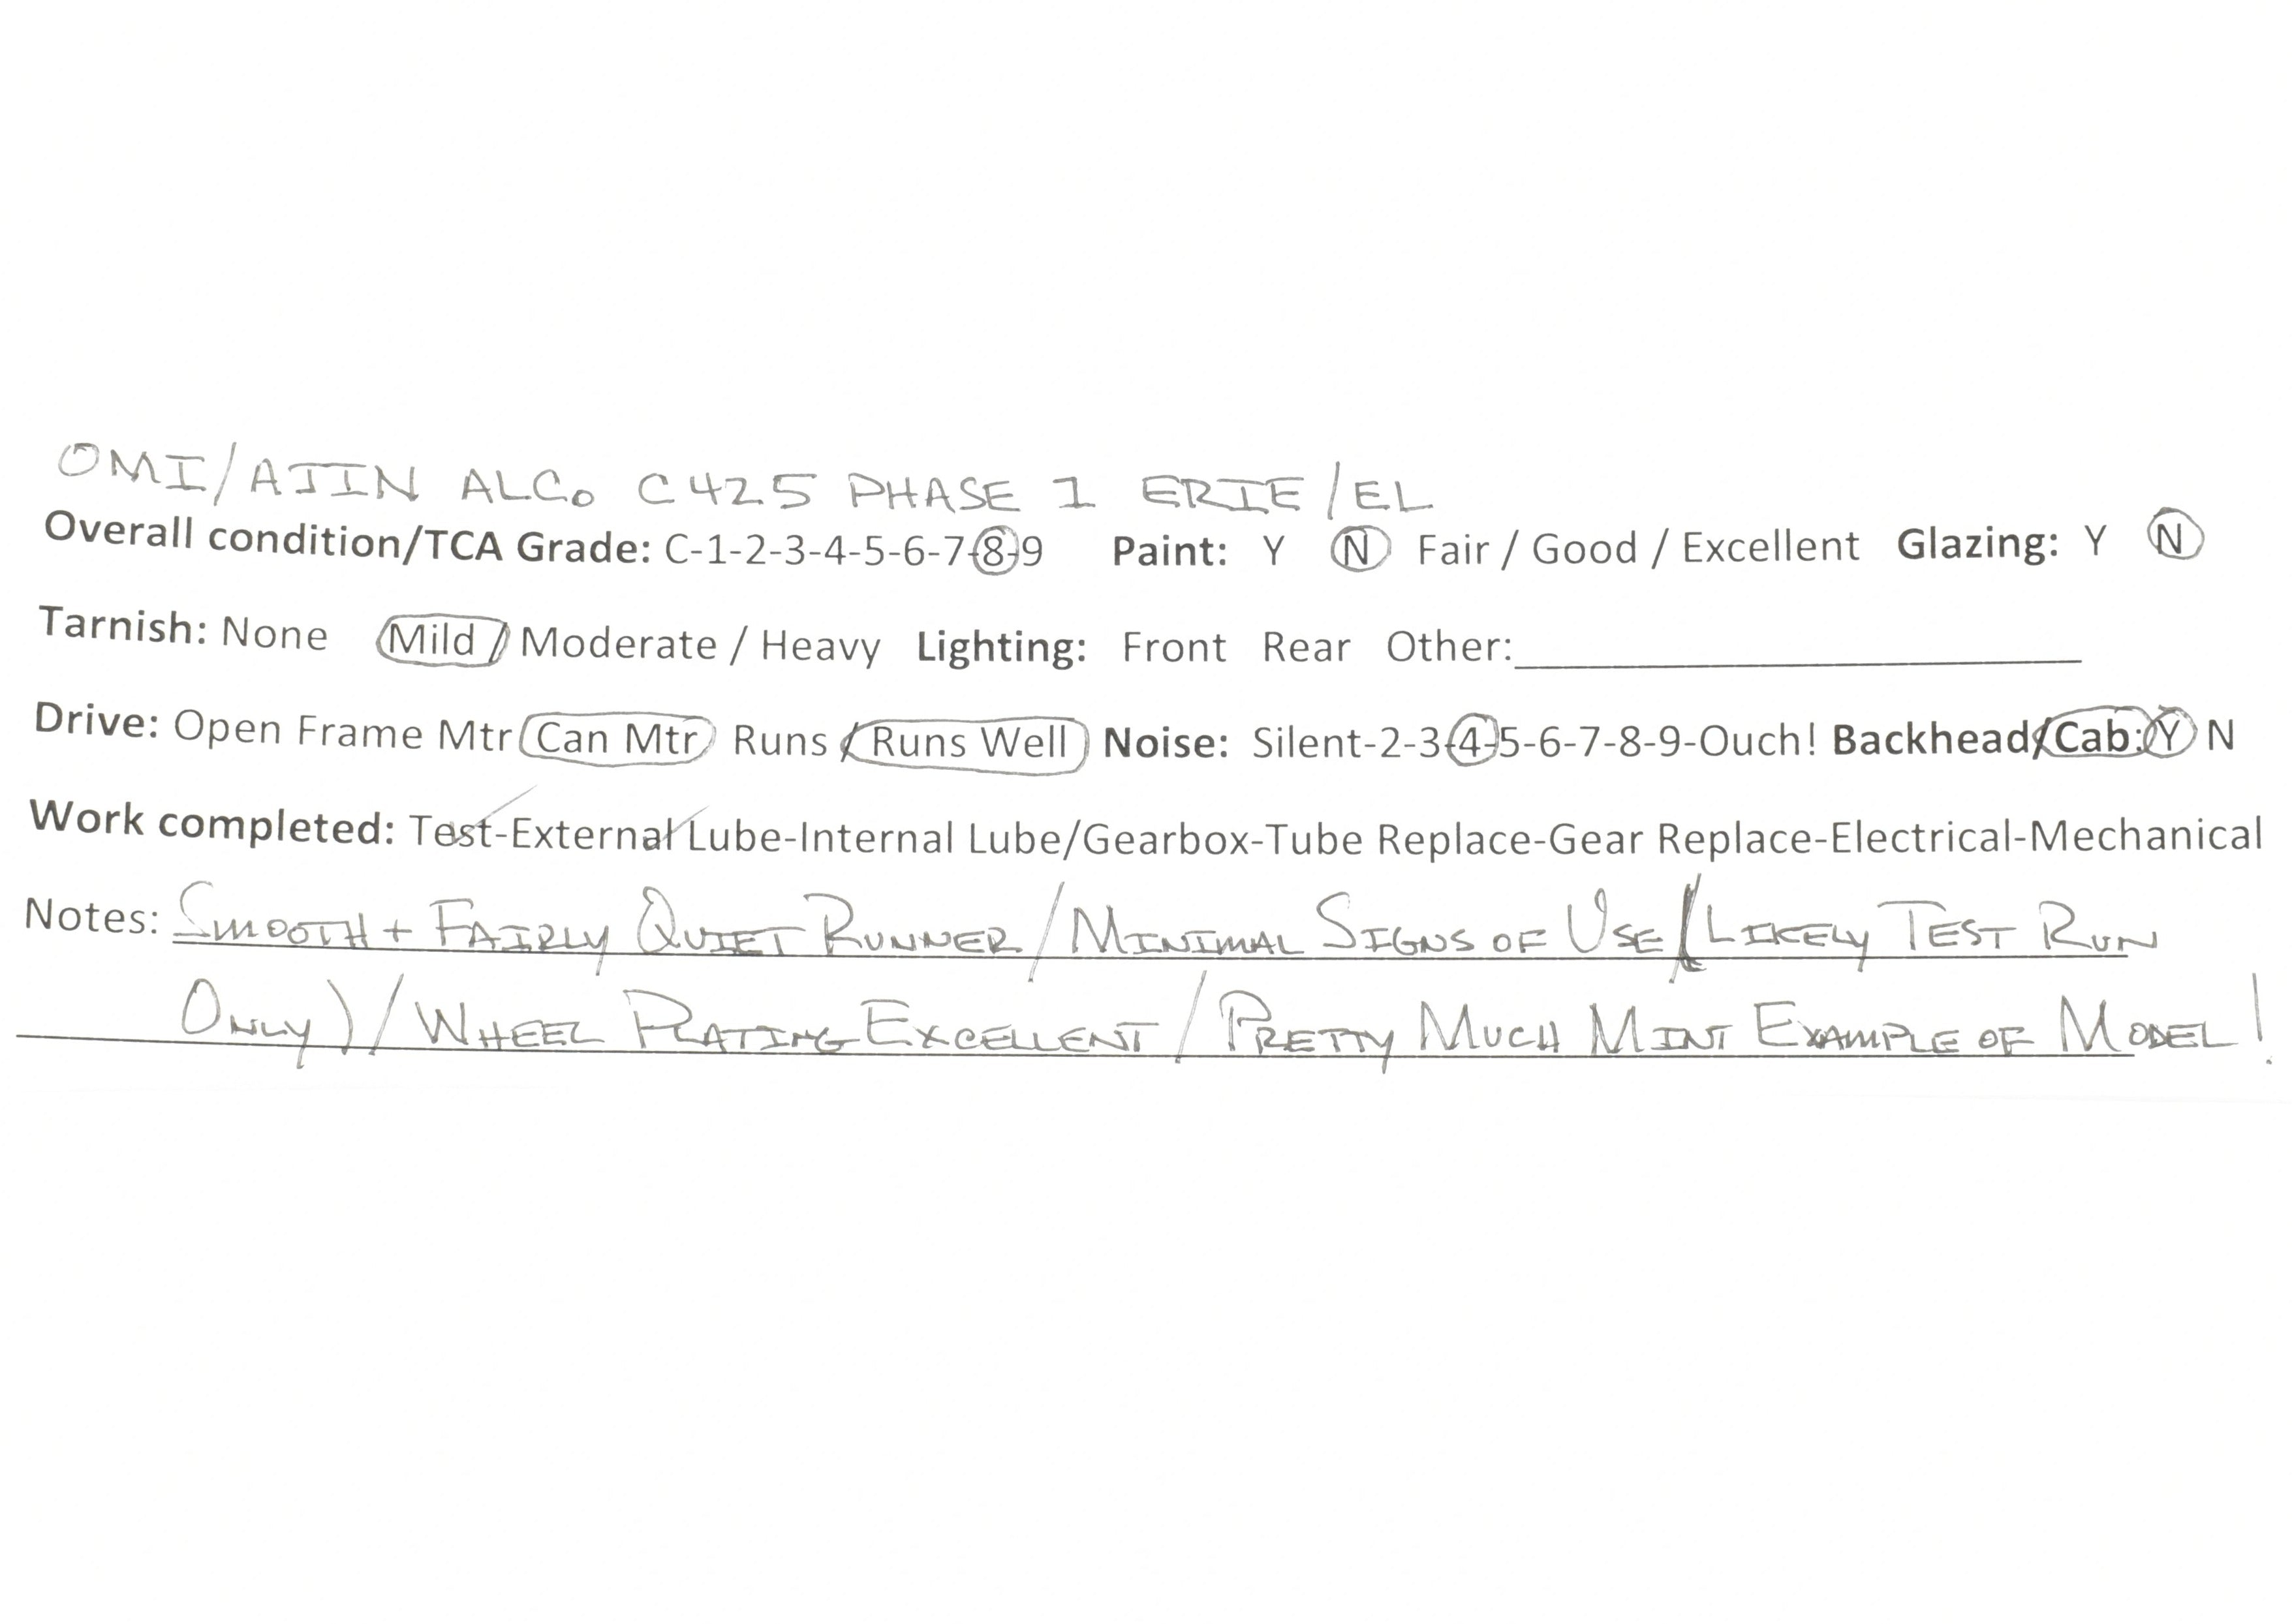 OMI/AJIN ALCo C425 PHASE 1 ERIE/EL
Overall condition/TCA Grade: C-1-2-3-4-5-6-7-8-9 Paint: Y N Fair / Good / Excellent Glazing: Y N
Tarnish: None Mild / Moderate / Heavy Lighting: Front Rear Other:
Drive: Open Frame Mtr Can Mtr Runs / Runs Well Noise: Silent-2-3-4-5-6-7-8-9-Ouch! Backhead/Cab: Y N
Work completed: Test-External Lube-Internal Lube/Gearbox-Tube Replace-Gear Replace-Electrical-Mechanical
Notes: SMOOTH + FAIRLY QUIET RUNNER / MINIMAL SIGNS OF USE (LIKELY TEST RUN
ONLY) / WHEEL PLATING EXCELLENT / PRETTY MUCH MINT EXAMPLE OF MODEL!